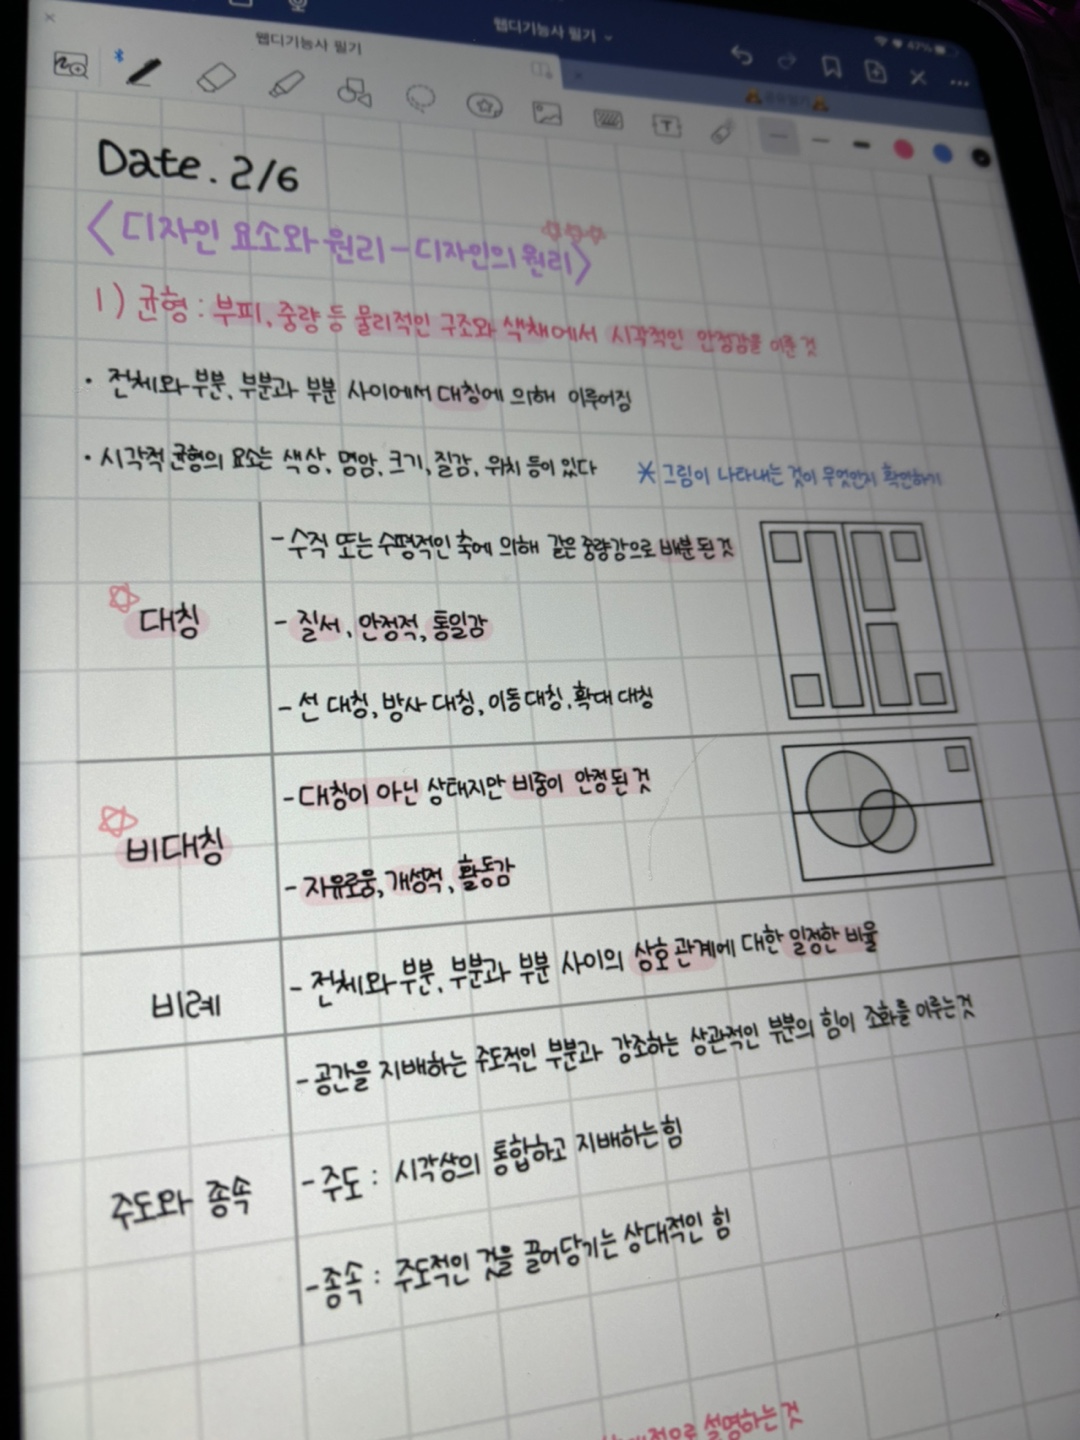 웹디기능사 필기
웹디기능사 필기
47%
Date. 2/6
<디자인 요소와 원리 - 디자인의 원리>
1) 균형 : 부피, 중량 등 물리적인 구조와 색채에서 시각적인 안정감을 이룬 것
· 전체와 부분, 부분과 부분 사이에서 대칭에 의해 이루어짐
· 시각적 균형의 요소는 색상, 명암, 크기, 질감, 위치 등이 있다
* 그림이 나타내는 것이 무엇인지 확인하기
대칭
- 수직 또는 수평적인 축에 의해 같은 중량감으로 배분 된 것
- 질서, 안정적, 통일감
- 선 대칭, 방사 대칭, 이동 대칭, 확대 대칭
비대칭
- 대칭이 아닌 상태지만 비중이 안정 된 것
- 자유로움, 개성적, 활동감
비례
- 전체와 부분, 부분과 부분 사이의 상호 관계에 대한 일정한 비율
주도와 종속
- 공간을 지배하는 주도적인 부분과 강조하는 상관적인 부분의 힘이 조화를 이루는 것
- 주도 : 시각상의 통합하고 지배하는 힘
- 종속 : 주도적인 것을 끌어당기는 상대적인 힘
설명하는 것